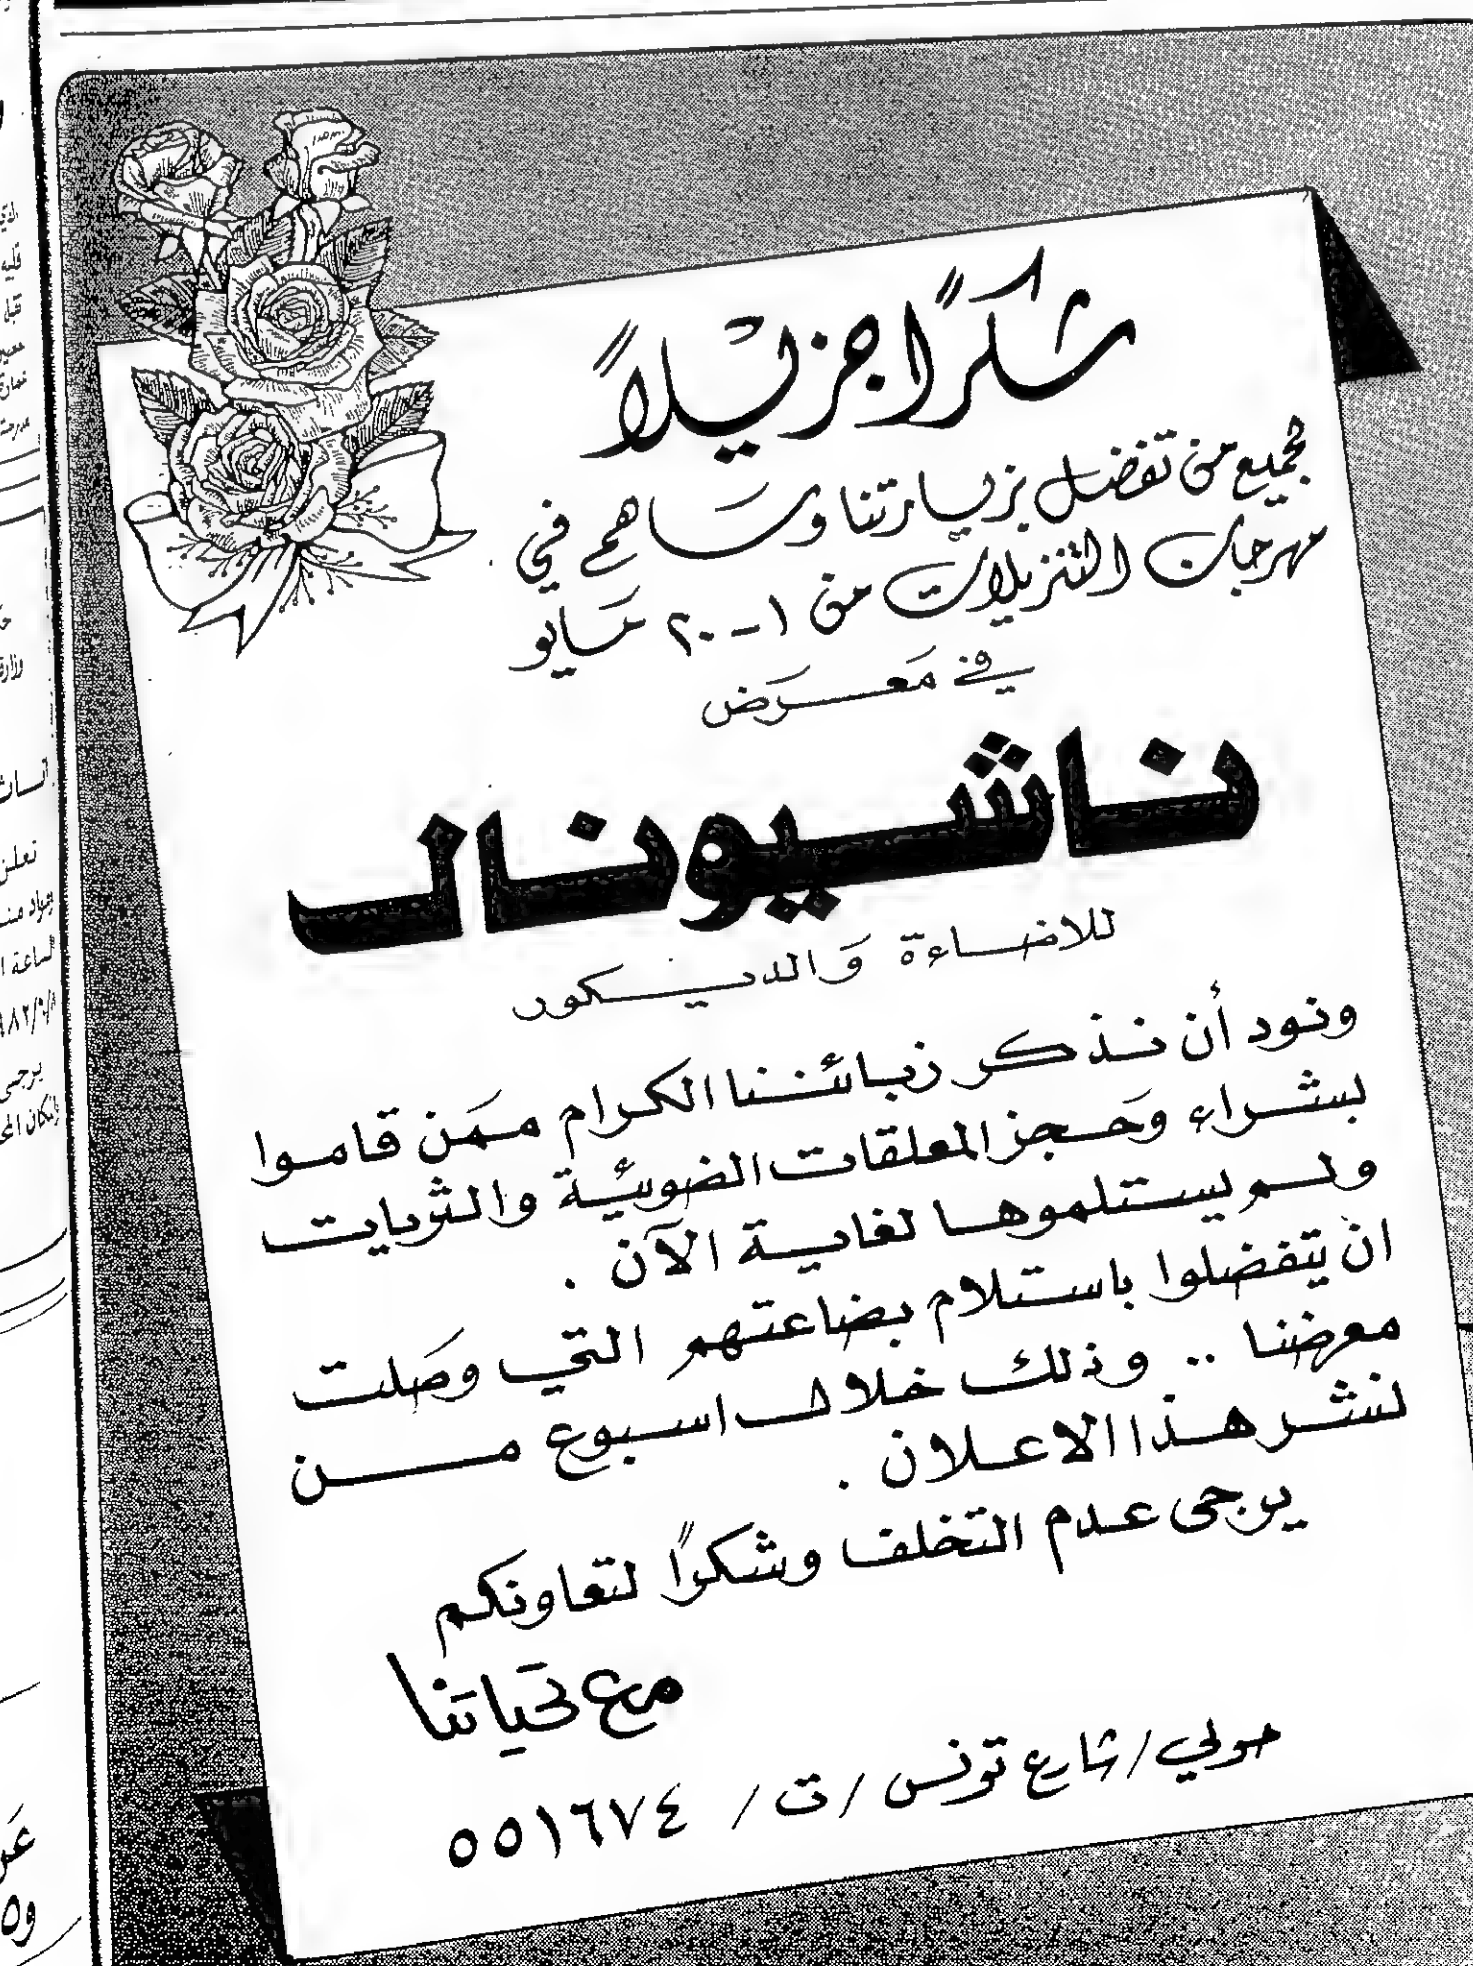 شكرًا جزيلاً
لجميع من تفضل بزيارتنا وساهم في
مهرجان التنزيلات من ١ - ٢٠ مايو
في معرض
ناشيونال
للاضاءة والديكور
ونود أن نذكر زبائننا الكرام ممن قاموا
بشراء وحجز المعلقات الضوئية والثريات
ولم يستلموها لغاية الآن .
ان يتفضلوا باستلام بضاعتهم التي وصلت
معرضنا .. وذلك خلال اسبوع من
نشر هذا الاعلان .
يرجى عدم التخلف وشكرًا لتعاونكم
مع تحياتنا
حولي / شارع تونس / ت / ٥٥١٦٧٤
تعلن
يرجى